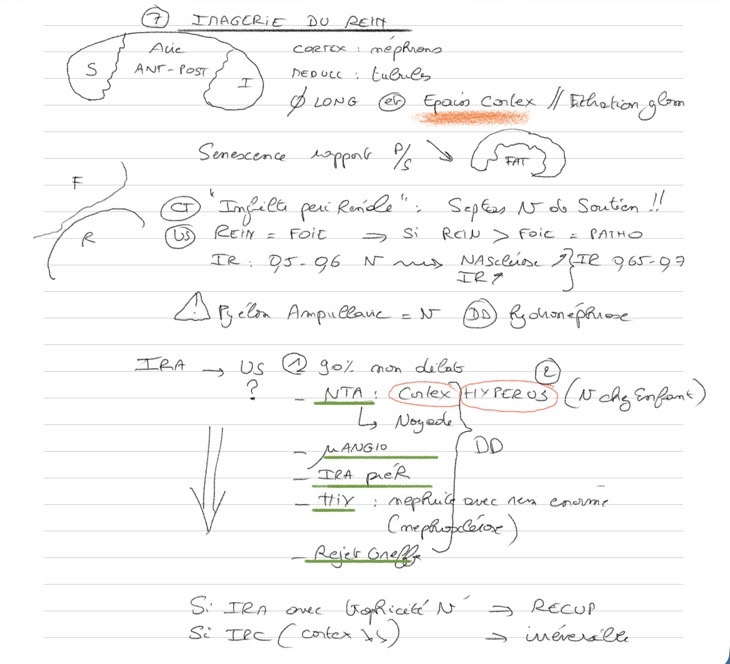 ⑦ IMAGERIE DU REIN
S Axe ANT-POST I
CORTEX : néphrons
MEDULL : tubules
∅ LONG et Epaiss Cortex // Filtration glom
Senescence rapport P/S ↘ FAT
F
R
CT "Infiltr péri Rénale" : Septas N de Soutien !!
US REIN = FOIE ⇒ Si REIN > FOIE = PATHO
IR : 0,5-0,6 N → NAsclérose ↗ } IR 0,65-0,7
IR ↗
⚠ Pyélon Ampullaire = N DD Pyélonéphrose
IRA → US ① 90% non dilat ②
? - NTA : Cortex HYPERUS (N chez Enfant)
↳ Noyade
- µANGIO DD
- IRA préR
- HIV : nephrite avec rein enorme
(nephrosclérose)
- Rejet Greffe
Si IRA avec trophicité N ⇒ RECUP
Si IRC (cortex ↘↘) → irréversible